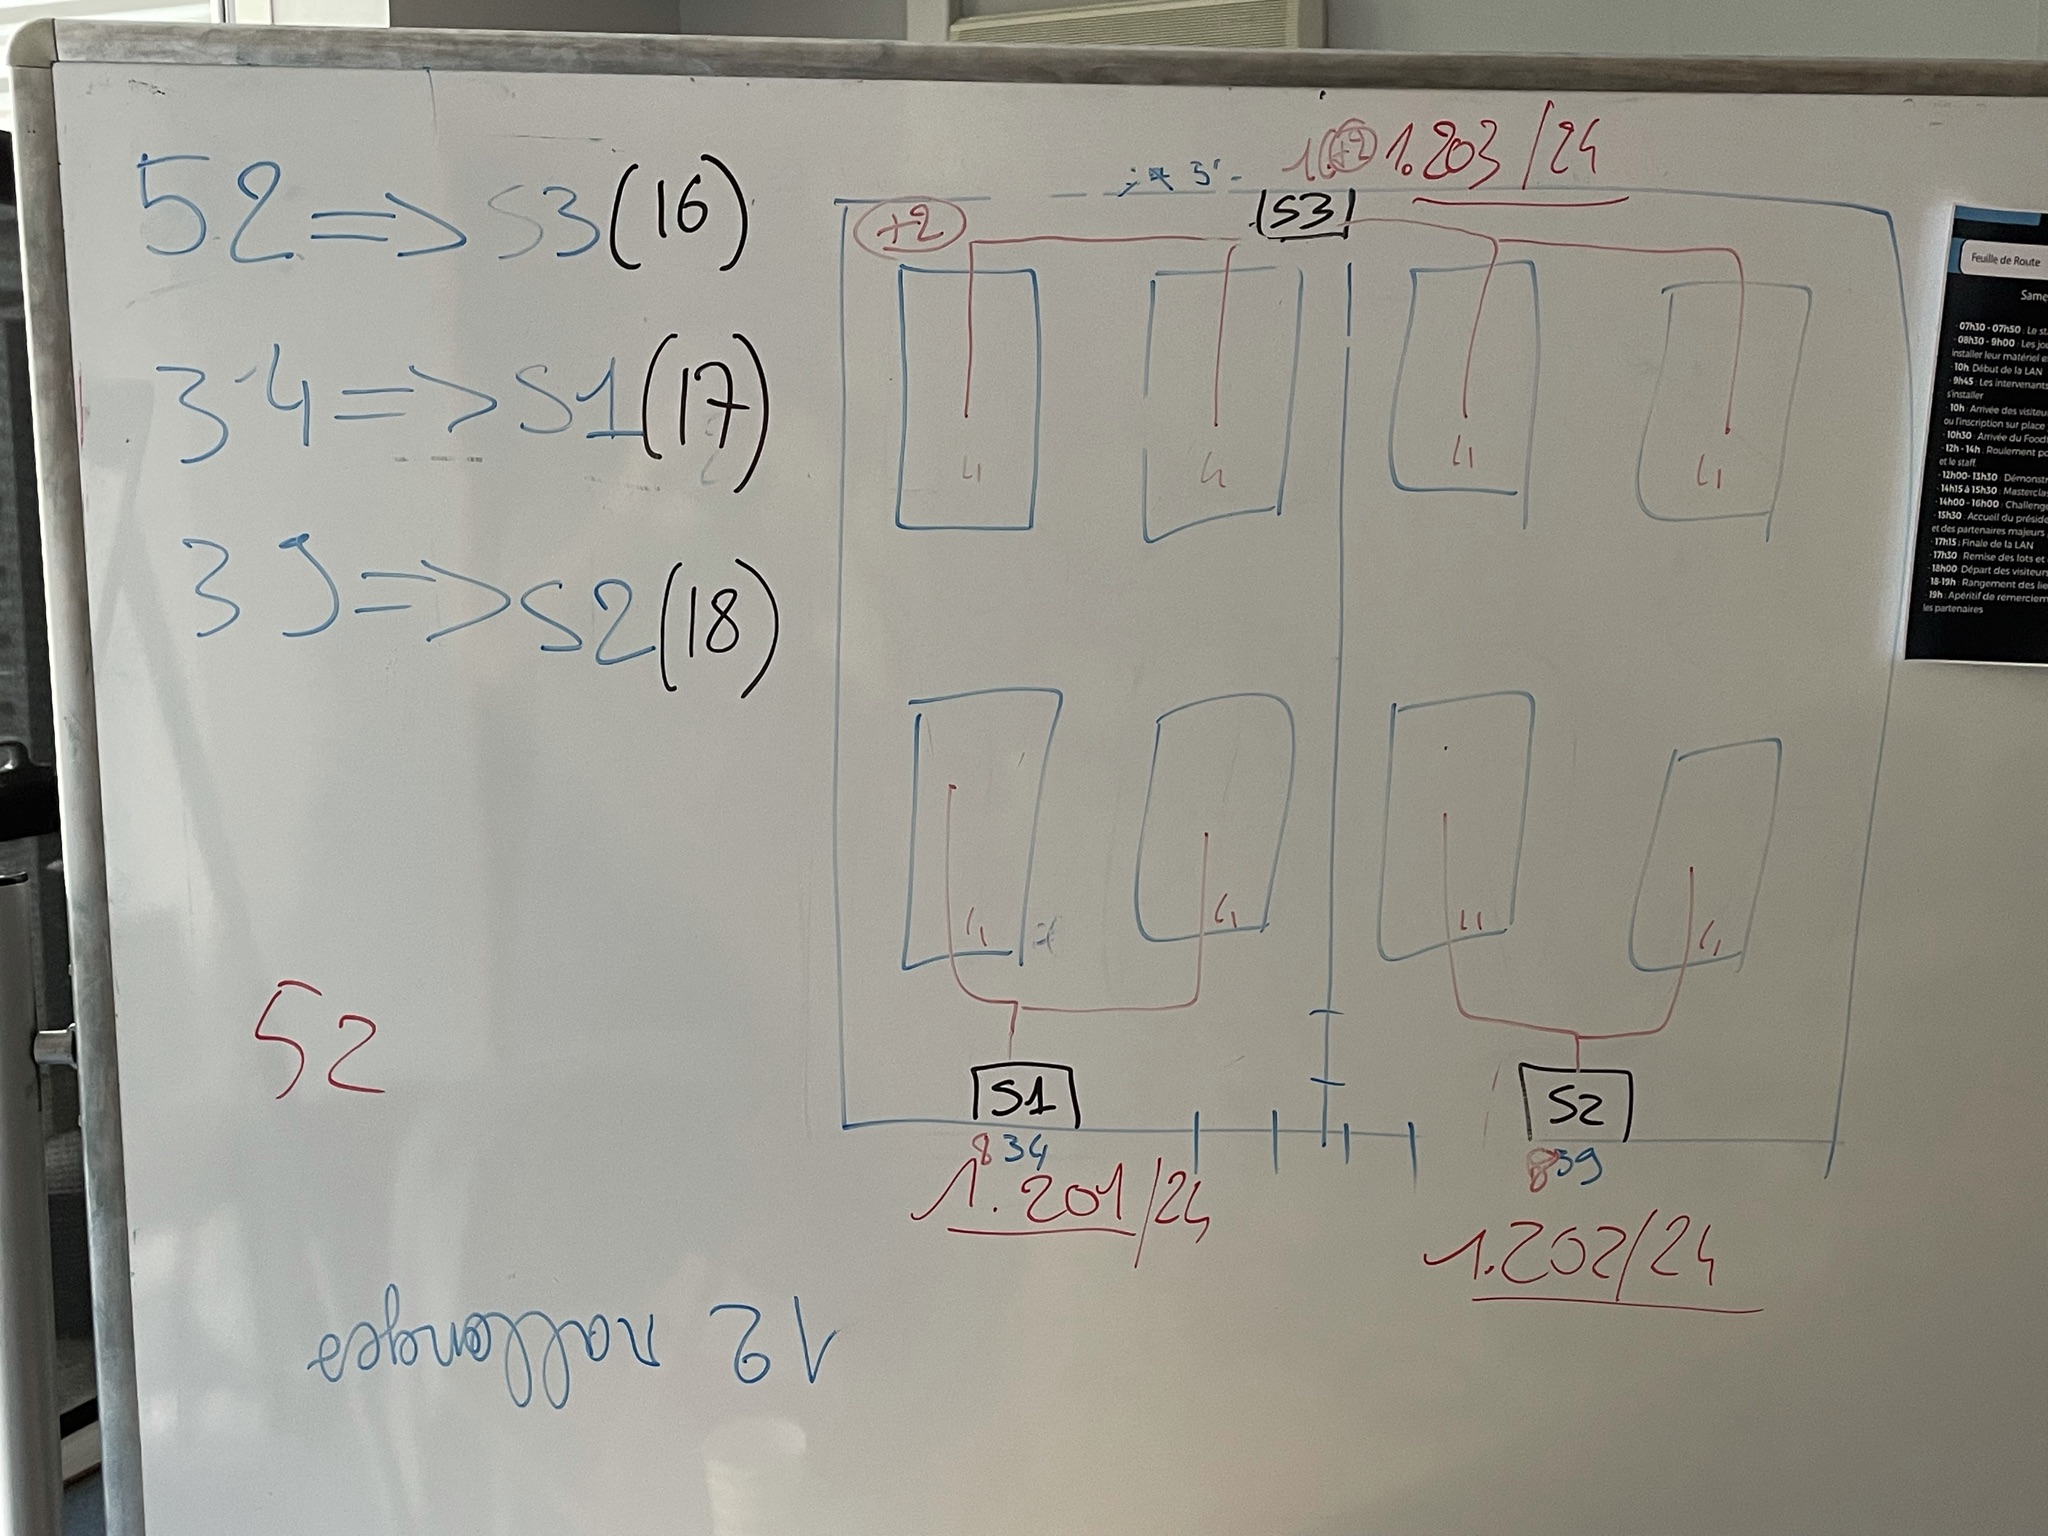 52 => S3 (16)
34 => S1 (17)
39 => S2 (18)
52
12 rallonges
1.203 /24
+2
S3
+2
4 4 4 4
4 4 4 4
S1
8 34
1.201/24
S2
8 39
1.202/24
Feuille de Route
Same
· 07h30 - 07h50 : Le st
· 08h30 - 9h00 : Les jo
installer leur matériel e
· 10h Début de la LAN
· 9h45 : Les intervenants
s'installer
· 10h : Arrivée des visiteu
ou l'inscription sur place
· 10h30 : Arrivée du Food
· 12h - 14h : Roulement po
et le staff
· 12h00- 13h30 : Démonstr
· 14h15 à 15h30 : Mastercla
· 14h00 - 16h00 : Challenge
· 15h30 : Accueil du préside
et des partenaires majeurs
· 17h15 : Finale de la LAN
· 17h30 Remise des lots et
· 18h00 Départ des visiteurs
· 18-19h : Rangement des lie
· 19h : Apéritif de remerciem
les partenaires